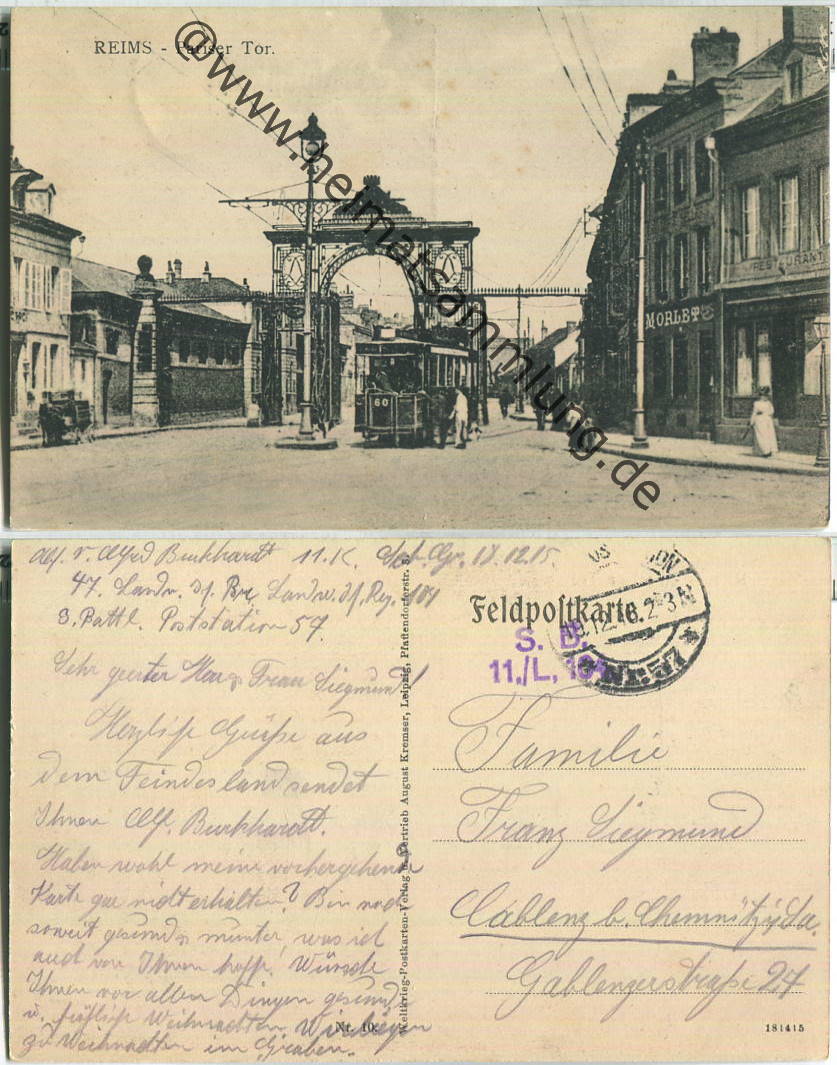 REIMS - Pariser Tor.
@www.heimatsammlung.de
MORLET
RESTAURANT
60
Abs. v. Alfred Burkhardt 11.K. 18.12.15.
47. Landw. Br. Landw. Reg. 104
3. Battl. Poststation 57.
Sehr geerter Herr u. Frau Siegmund!
Herzliche Grüße aus
dem Feindesland sendet
Ihnen Alf. Burkhardt.
Haben wohl meine vorhergehende
Karte gar nicht erhalten? Bin noch
soweit gesund u. munter, was ich
auch von Ihnen hoffe. Wünsche
Ihnen vor allen Dingen gesunde
u. fröhliche Weihnachten. Wir liegen
zu Weihnachten im Graben.
Nr. 10.
Weltkrieg-Postkarten-Verlag u. Vertrieb August Kremser, Leipzig, Pfaffendorferstr. 3.
Feldpostkarte
S. B.
11./L. 104
2-3 N
Familie
Franz Siegmund
Cablenz b. Chemnitz i/Sa.
Gablenzerstraße 27
181415